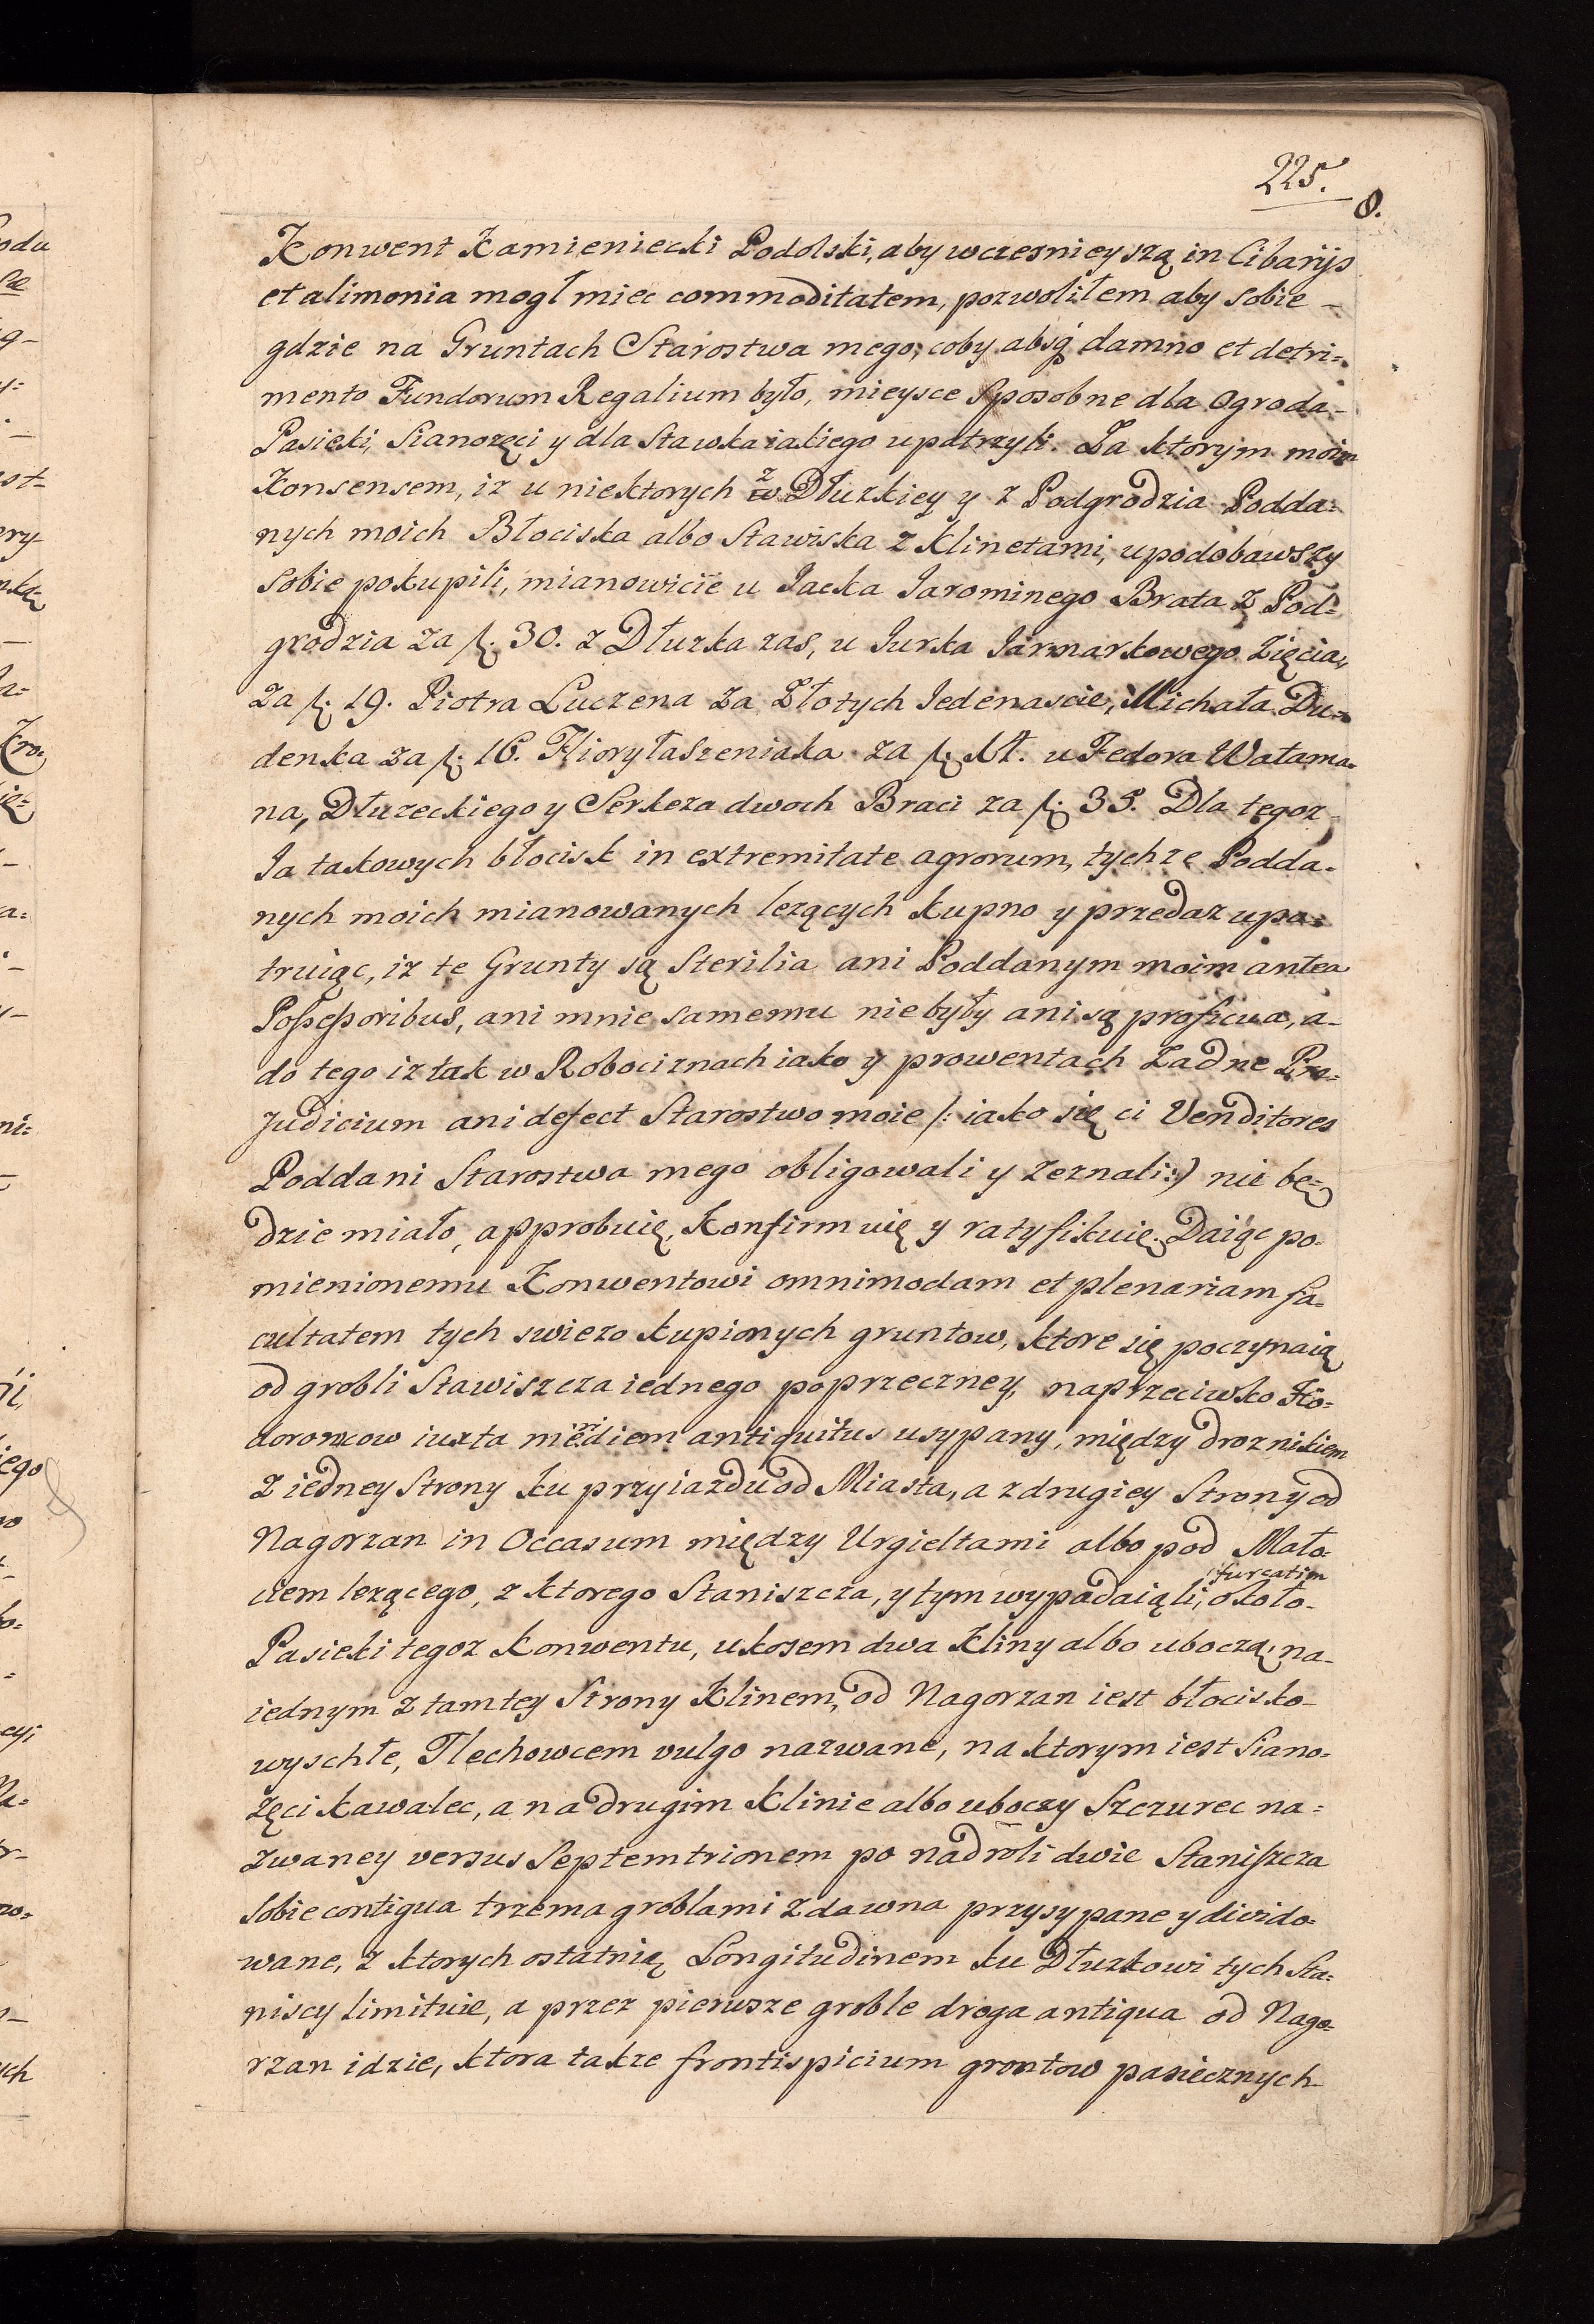 225.
8.
Konwent Kamieniecki Podolski, aby wczesnieyszą in Cibarijs
et alimonia mogł miec commoditatem, pozwoliłem aby sobie –
gdzie na Gruntach Starostwa mego, coby absq damno et detri=
mento Fundorum Regalium było, mieysce sposobne dla Ogroda –
Pasieki, Sianozęci y dla Stawka iakiego upatrzyli. Za ktorym moim
Konsensem, iz u niektorych z Dłuzkiey y z Podgrodzia Podda=
nych moich Błociska albo Stawiska z Klinetami, upodobawszy
sobie pokupili, mianowicie u Jacka Jarominego Brata z Pod=
grodzia za f. 30. z Dłuzka zas, u Jurka Jarmarkowego Zięcia,
za f. 19. Piotra Luczena za Złotych Jedenascie, Michała Du=
denka za f. 16. za f. u Fedora Watama=
na, Dłuzeckiego y Serkeza dwoch Braci za f. 35. Dla tegoz –
Ja takowych błocisk in extremitate agrorum, tychze Podda=
nych moich mianowanych lezących kupno y przedaz upa=
truiąc, iz te Grunty są Sterilia ani Poddanym moim antea
Possessoribus, ani mnie samemu nie były ani są proficua, a –
do tego iz tak w Robociznach iako y prowentach zadne Præ=
judicium ani defect Starostwo moie /: iako się ci Venditores
Poddani Starostwa mego obligowali y zeznali :) nie bę=
dzie miało, approbuię, Konfirmuię y ratyfikuię. Daiąc po=
mienionemu Konwentowi omnimodam et plenariam fa=
cultatem tych swiezo kupionych gruntow, ktore się poczynaią
od grobli Stawiszcza iednego poprzeczney, naprzeciwko Ho=
doronkow iuxta meridiem antiquitus usypany, między droznikiem
z iedney Strony ku przyiazdu od Miasta, a z drugiey Strony od
Nagorzan in Occasum między Urgieltami albo pod Mało=
ciem lezącego, z ktorego Staniszcza, y tym wypadaiąli, furcatim około –
Pasieki tegoz Konwentu, ukosem dwa Kliny albo uboczą, na –
iednym z tamtey Strony Klinem, od Nagorzan iest błocisko –
wyschłe, Tlechowcem vulgo nazwane, na ktorym iest Siano=
zęci kawalec, a na drugim Klinie albo uboczy Szczurec na=
zwaney versus Septemtrionem po nad roli dwie Staniszcza
Sobie contigua trzema groblami z dawna przysypane y divido=
wane, z ktorych ostatnią Longitudinem ku Dłuzkowi tych Sta=
niscy limituie, a przez pierwsze groble droga antiqua od Nago=
rzan idzie, ktora takze frontispicium grontow pasiecznych –